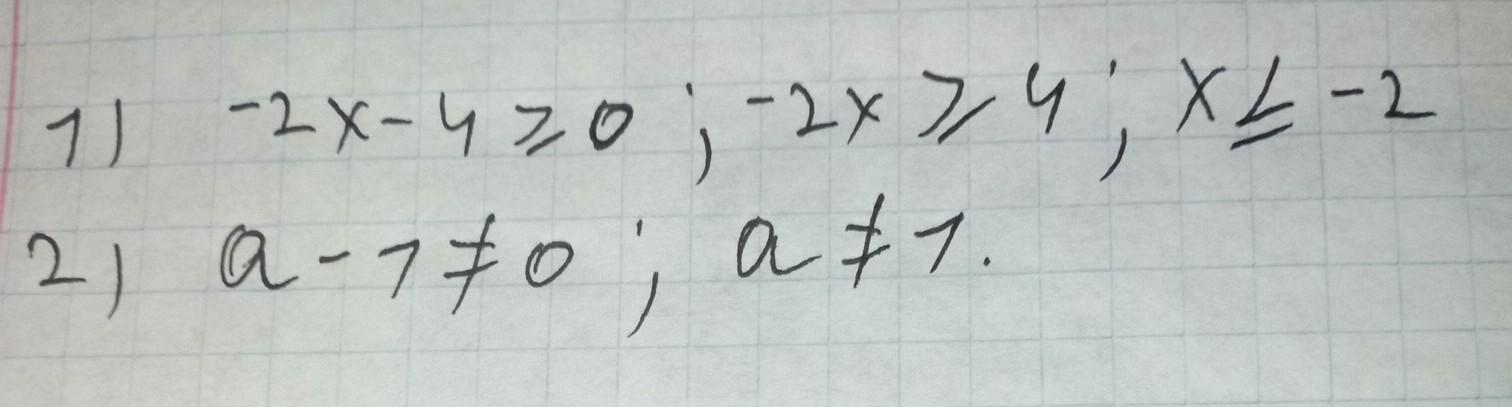 1) -2x-4≥0; -2x≥4; x≤-2
2) a-1≠0; a≠1.